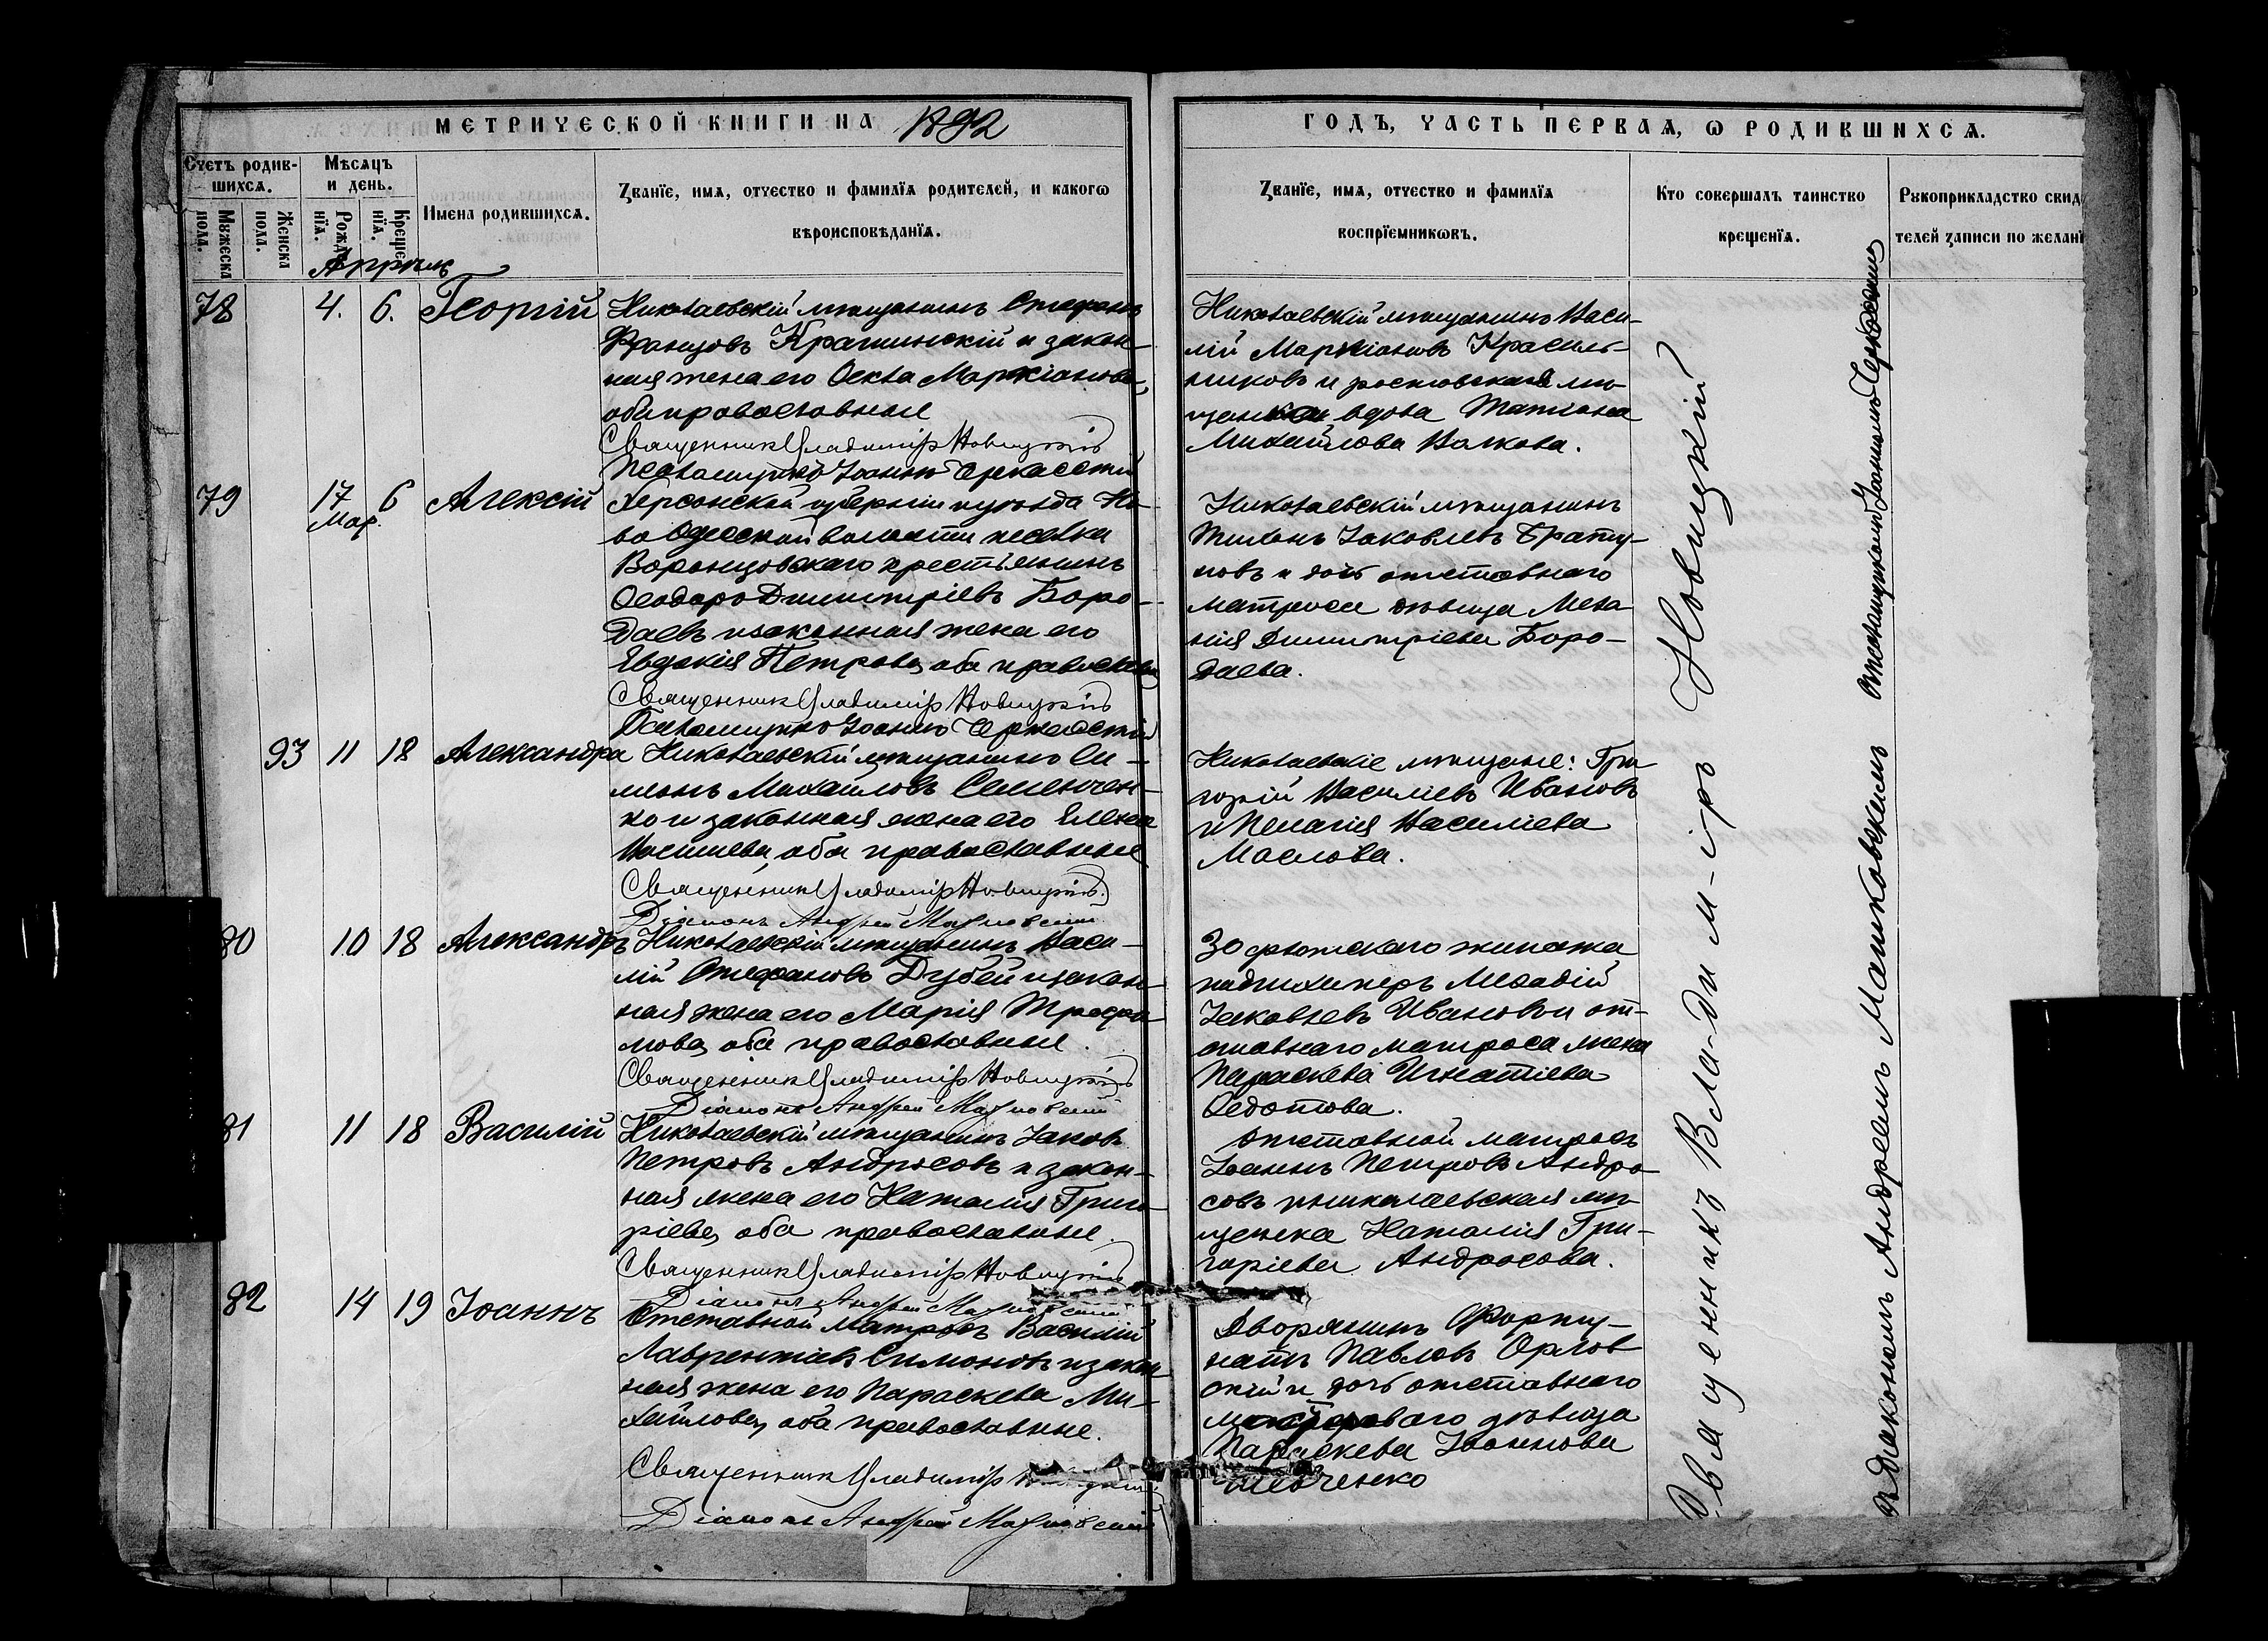 МЕТРИЧЕСКОЙ КНИГИ НА 1892
ГОДЪ, ЧАСТЬ ПЕРВАѦ, Ѡ РОДИВШИХСѦ.
Счетъ родив-
шихсѧ.
Мѣсѧцъ
и день.
Мꙋжеска
пола.
Женска
пола.
Рожде
нїѧ.
Креще
нїѧ.
Имена родившихсѧ.
Званїе, имѧ, отчество и фамилїѧ родителей, и какогѡ
вѣроисповѣданїѧ.
Званїе, имѧ, отчество и фамилїѧ
воспрїемникѡвъ.
Кто совершалъ таинство
крещенїѧ.
Рꙋкоприкладство свид
телей записи по желанї
Апрѣль
78 4. 6. Георгій
Николаевскій мѣщанинъ Стефанъ
Францовъ Крашинскій и закон-
ная жена его Ѳекла Маркіанова,
оба православные
Священникъ Владиміръ Новицкій
Псаломщикъ Іоаннъ Черкасскій
Николаевскій мѣщанинъ Васи-
лій Маркіановъ Красиль-
никовъ и ростовская мѣ-
щанка вдова Татіана
Михайлова Волкова.
79 17 Мар. 6 Алексій
Херсонской губерніи и уѣзда Но-
во Одесской волости поселка
Воронцовскаго крестьянинъ
Ѳеодоръ Димитріевъ Боро-
даевъ и законная жена его
Евдокія Петрова, оба православн
Священникъ Владиміръ Новицкій
Псаломщикъ Іоаннъ Черкасскій
Николаевскій мѣщанинъ
Тихонъ Іаковлевъ Брату-
новъ и дочь отставнаго
матроса дѣвица Мела
нія Димитріева Боро-
даева.
93 11 18 Александра
Николаевскій мѣщанинъ Си-
меонъ Михайловъ Семенчен-
ко и законная жена его Елена
Васильева, оба православные
Священникъ Владиміръ Новицкій.
Діаконъ Андрей Машковскій
Николаевскіе мѣщане: Гри
горій Василіевъ Ивановъ
и Пелагія Василіева
Маслова.
80 10 18 Александръ
Николаевскій мѣщанинъ Васи-
лій Стефановъ Дубей и закон-
ная жена его Марія Трофи
мова, оба православные.
Священникъ Владиміръ Новицкій
Діаконъ Андрей Машковскій
30 флотскаго экипажа
Меѳодій
Іаковлевъ Ивановъ и от-
ставнаго матроса жена
Параскева Игнатіева
Ѳедотова.
81 11 18 Василій
Николаевскій мѣщанинъ Іаковъ
Петровъ Андросовъ и закон-
ная жена его Наталія Григо-
ріева, оба православные.
Священникъ Владиміръ Новицкій
Діаконъ Андрей Машковскій
Отставной матросъ
Іоаннъ Петровъ Андро-
совъ и николаевская мѣ-
щанка Наталія Гри-
горіева Андросова.
82 14 19 Іоаннъ
Отставной матросъ Василій
Лаврентіевъ Симоновъ и закон
ная жена его Параскева Ми-
хайлова, оба православные.
Священникъ Владиміръ
Діаконъ Андрей Машковскій
Дворянинъ Форту-
натъ Павловъ Орлов
скій и дочь отставнаго
дѣвица
Параскева Іоаннова
Шевченко
Священникъ Владиміръ Новицкій
съ діакономъ Андреемъ Машковскимъ
и псаломщикомъ Іоанномъ Черкасскимъ